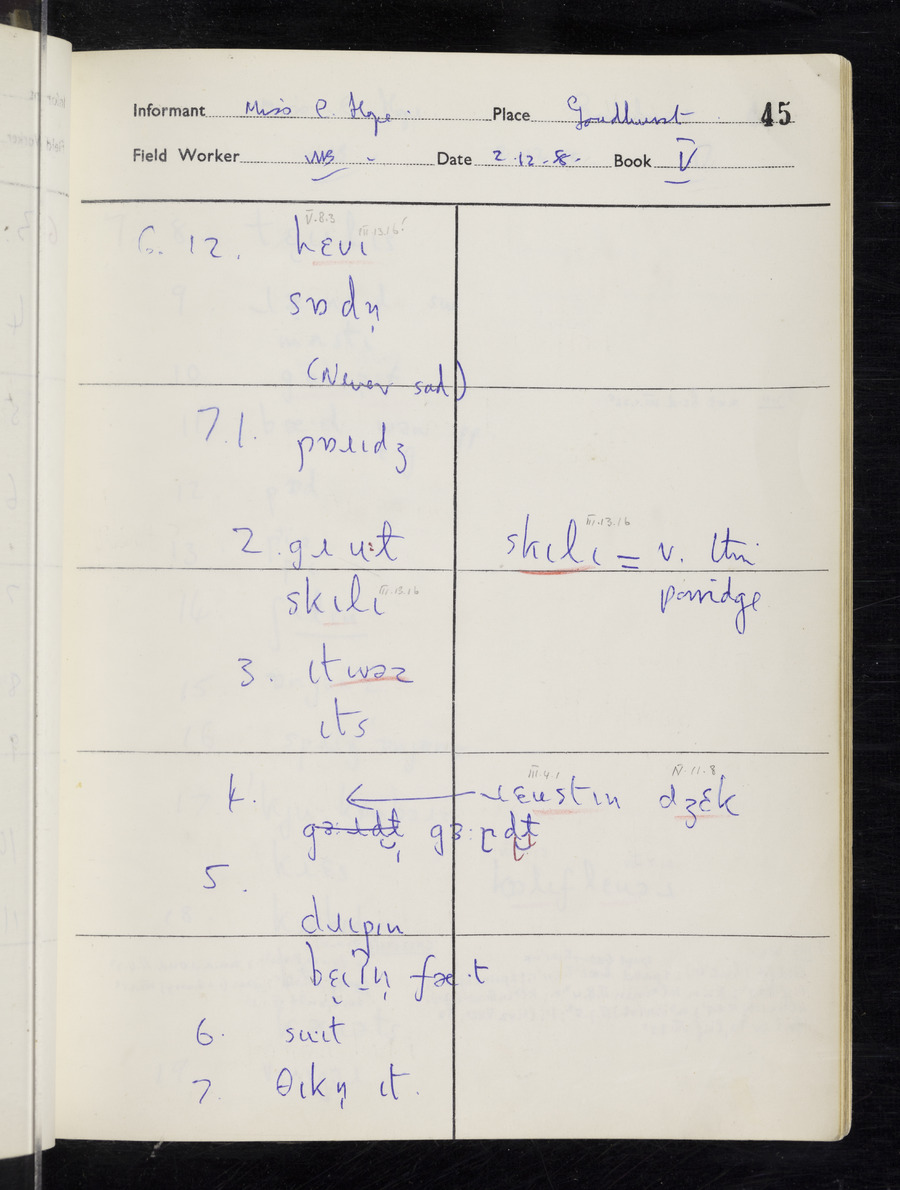 Informant Miss C. Hope. Place Goudhurst 45
Field Worker Date 2.12.58. Book V
V.8.3
III.13.16
6. 12. hɛvɪ
sɒdn̩
(Never sad)
7.1. pɒɹɪdʒ
III.13.16
2. gɹuːt skɪlɪ = v. thin
skɪlɪ III.13.16 porridge
3. ɪtwəz
ɪts
III.4.1 IV.11.8
4. ← ɹɛʊstɪn dʒɛk
5.
dɹɪpɪn
6. suɪt
7. θɪkn̩ ɪt.